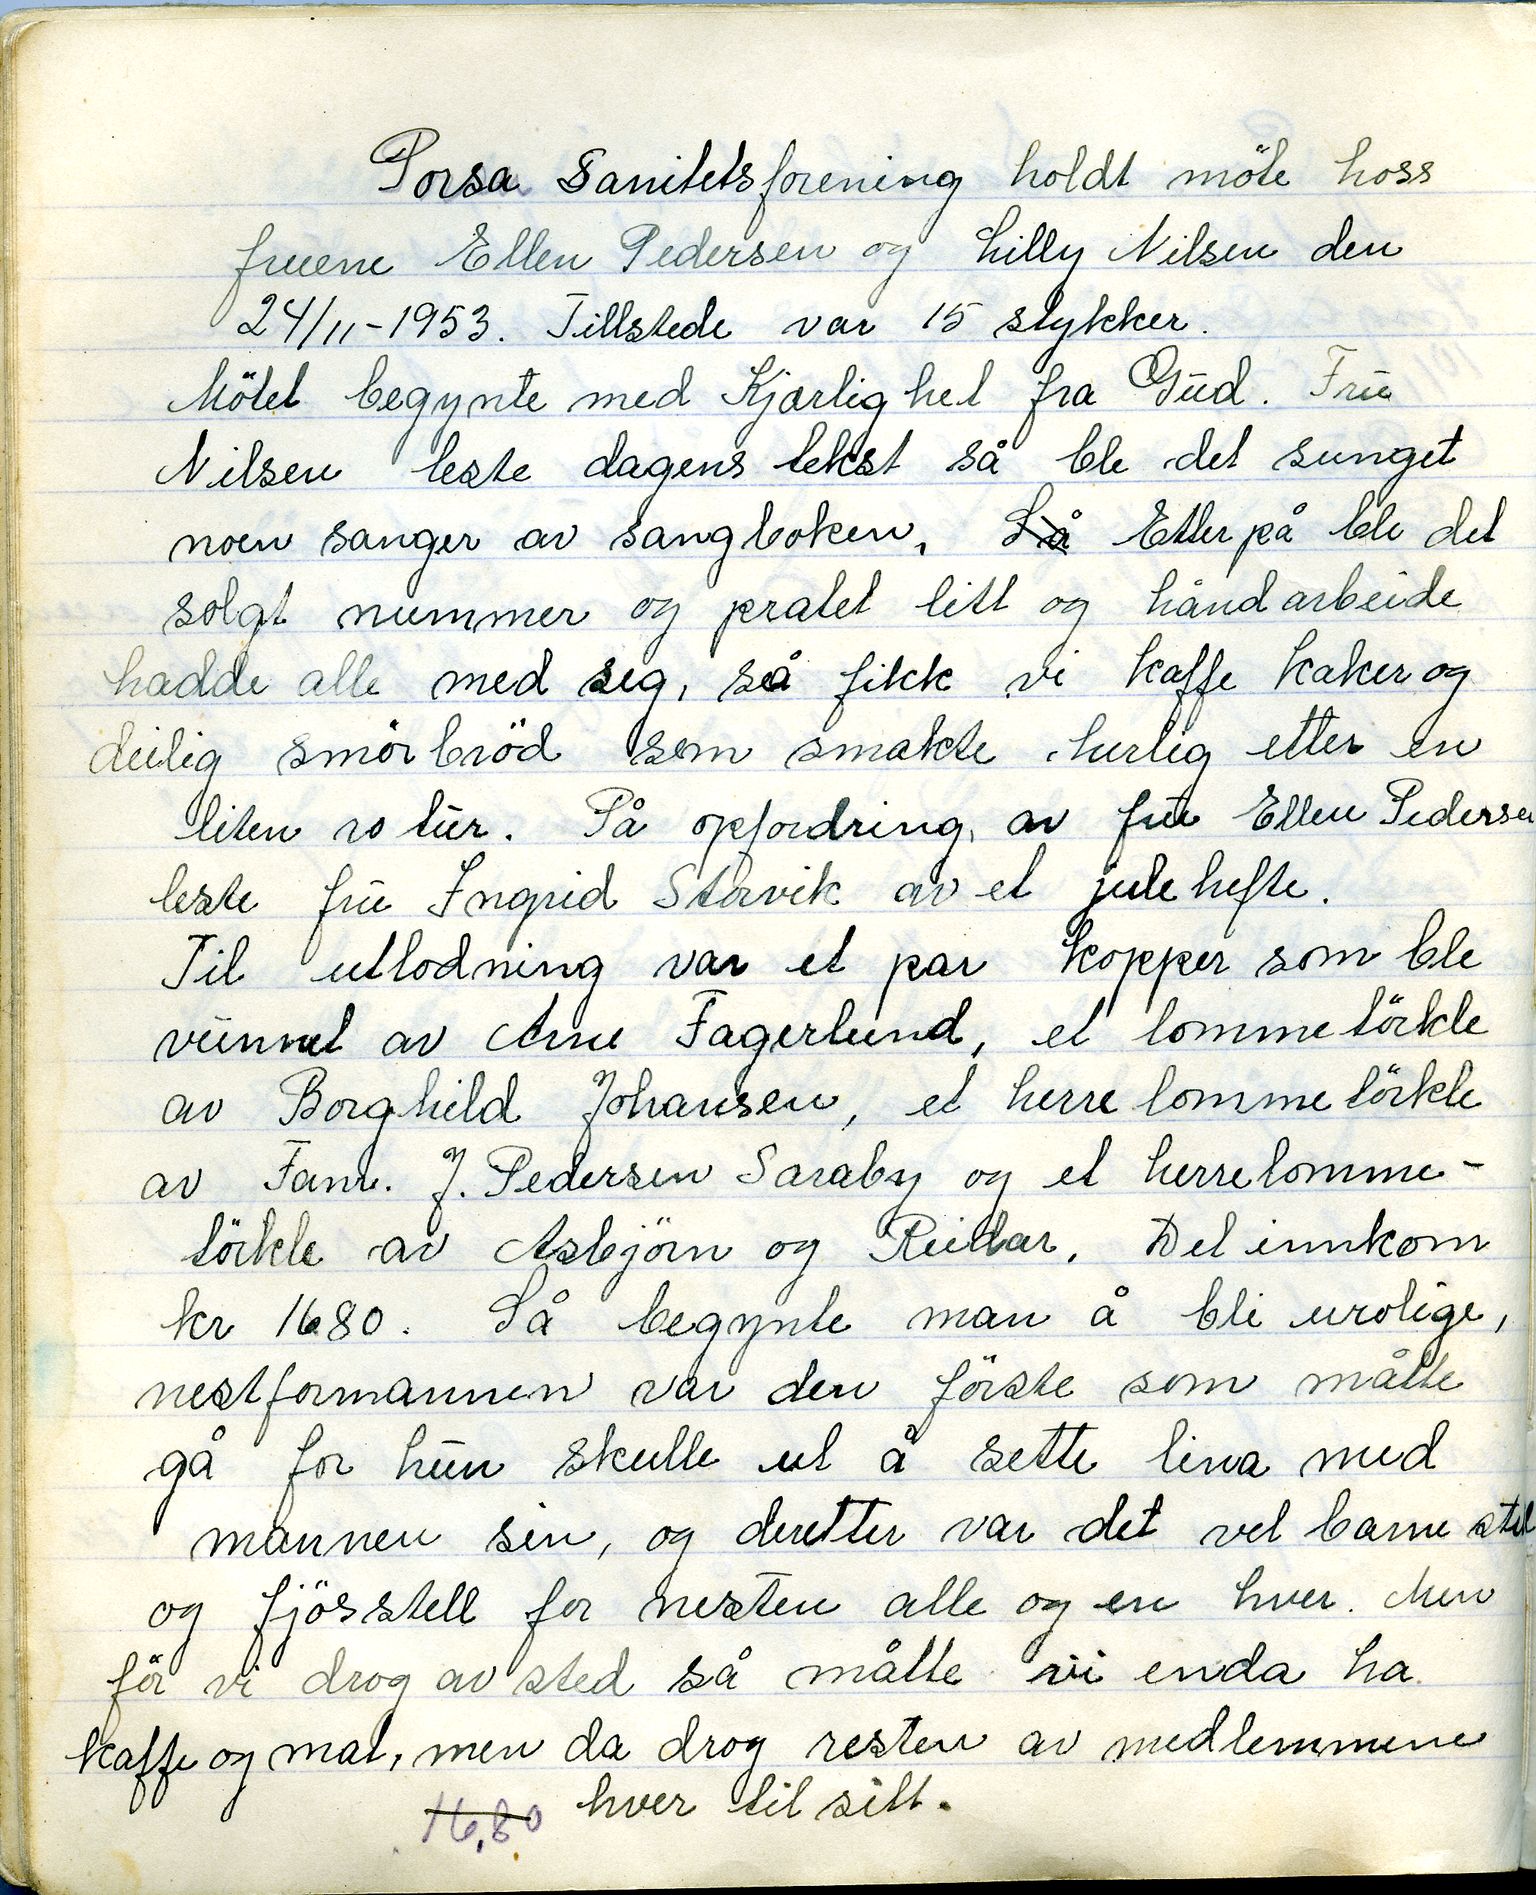 Porsa Sanitetsforening holdt möte hoss
fruene Ellen Pedersen og Lilly Nilsen den
24/11-1953. Tillstede var 15 stykker.
Mötet begynte med Kjærlighet fra Gud. Fru
Nilsen leste dagens tekst så ble det sunget
noen sanger av sangboken, Så Etter på ble det
solgt nummer og pratet litt og håndarbeide
hadde alle med seg, så fikk vi kaffe kaker og
deilig smörbröd som smakte herlig etter en
liten ro tur. På oppfordring, av fru Ellen Pedersen
leste fru Ingrid Storvik av et julehefte.
Til utlodning var et par kopper som ble
vunnet av Arne Fagerlund, et lommetörkle
av Borghild Johansen, et herre lommetörkle
av Fam. J. Pedersen Saraby og et herrelomme-
törkle av Asbjörn og Reidar. Det innkom
kr 16.80. Så begynte man å bli urolige,
nestformannen var den förste som måtte
gå for hun skulle ut å sette lina med
mannen sin, og deretter var det vel barnestel
og fjösstell for nesten alle og en hver. Men
för vi drog av sted så måtte vi enda ha
kaffe og mat, men da drog resten av medlemmene
hver til sitt.
16,80